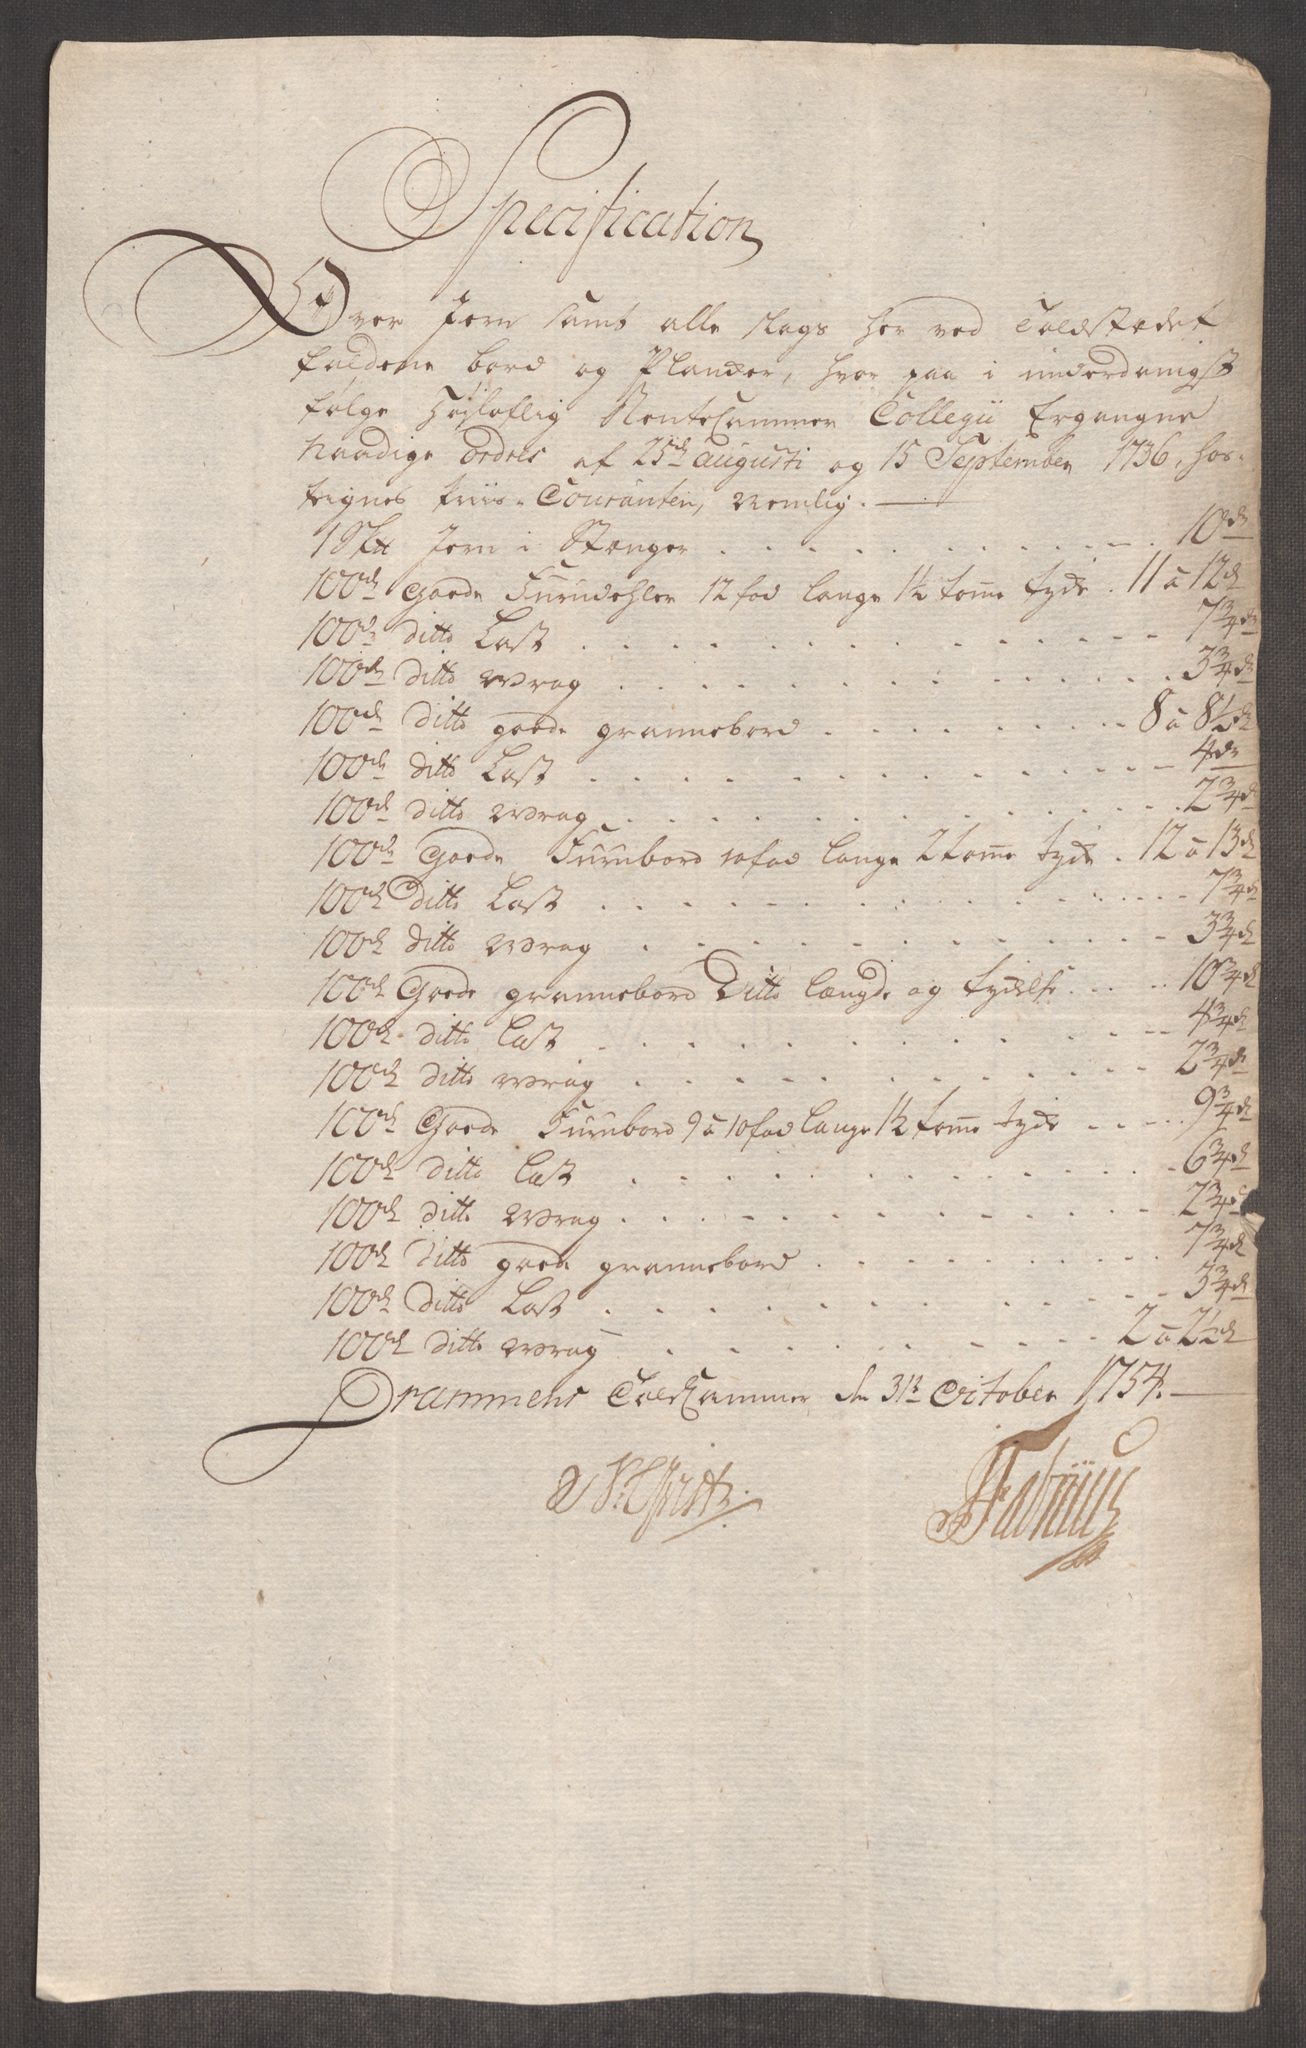 Specification
Over Jern samt alle slags her ved Toldstædet
faldene bord og Plancker, hvor paa i underdanigst
følge Høyloflig RenteCammer Collegii Ergangne
Naadige Ordres af 25de Augusti og 15 September 1736, hos-
teignes Priis-Couranten, Nemlig. —
1 Sk℔ Jern i Stænger . . . 10 dr
100de Goede Furudehler 12 fod lange 1½ tomme tyck . 11 a 12 dr
100de ditto Last . . . 7¾ dr
100de ditto Wrag . . . 3¾ dr
100de Ditto goede grannebord . . . 8 a 8½ dr
100de ditto Last . . . 4 dr
100de ditto Wrag . . . 2¾ dr
100de Goede Furubord 10 fod lange 2 tomme tyck . 12 a 13 dr
100de Ditto Last . . . 7¾ dr
100de ditto Wrag . . . 3¾ dr
100de Goede grannebord Ditto længde og tyckelse . . . 10¾ dr
100de ditto Last . . . 4¾ dr
100de ditto Wrag . . . 2¾ dr
100de Goede Furubord 9 a 10 fod lange 1½ tomme tyck . . . 9¾ dr
100de ditto Last . . . 6¾ dr
100de ditto Wrag . . . 2¾ d
100de Ditto goede grannebord . . . 7¾ dr
100de Ditto Last . . . 3¾ dr
100de ditto Wrag . . . 2 a 2½ dr
Drammens ToldCammer den 31te October 1754. —
Fabriius